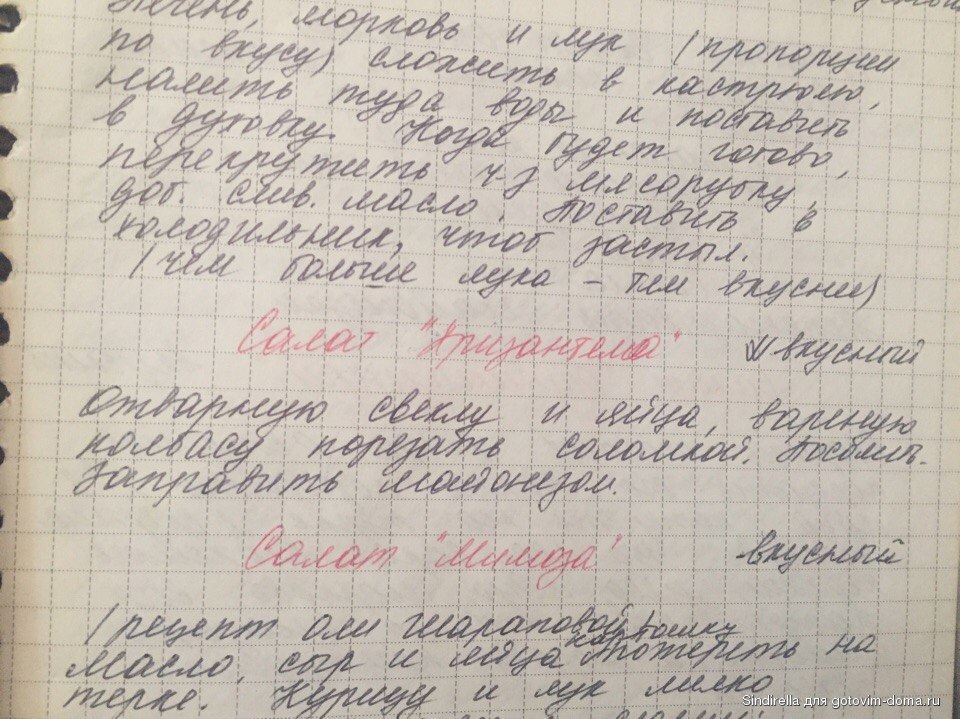 Печень, морковь и лук (пропорции
по вкусу) сложить в кастрюлю,
налить туда воды и поставить
в духовку. Когда будет готово,
перекрутить ч-з мясорубку,
доб. слив. масло. Поставить в
холодильник, чтоб застыл.
(чем больше лука – тем вкуснее)
Салат "Хризантема" вкусный
Отварную свеклу и яйца, вареную
колбасу порезать соломкой. Посолить.
Заправить майонезом.
Салат "Мимоза" вкусный
(рецепт оли шараповой)
Масло, сыр и яйца потереть на
терке. Курицу и лук мелко
Sindirella для gotovim-doma.ru